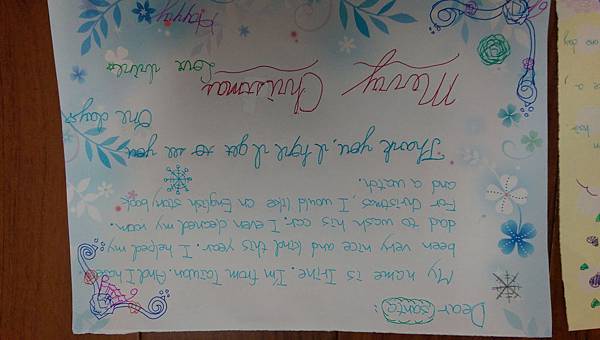 Dear santa:
My name is Irine. I'm from Taiwan. And I have
been very nice and kind this year. I helped my
dad to wash his car. I even cleaned my room.
For Christmas, I would like an English story book
and a watch.
Thank you, I hope I get to see you
One day
Merry Christmas
Love